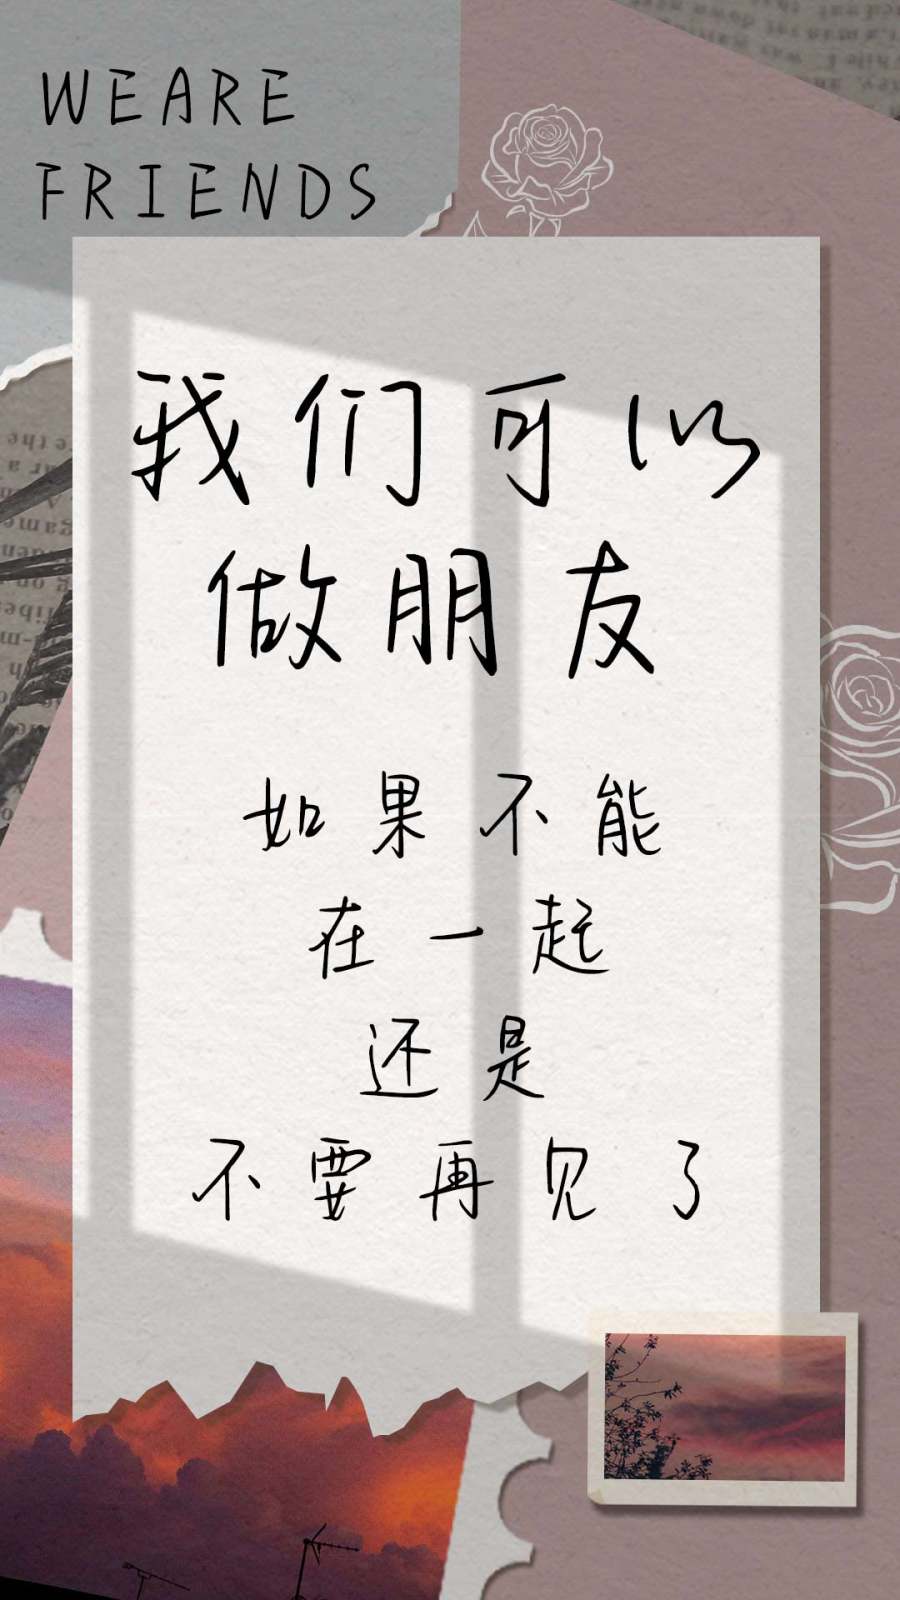 WEARE
FRIENDS
我们可以
做朋友
如果不能
在一起
还是
不要再见了